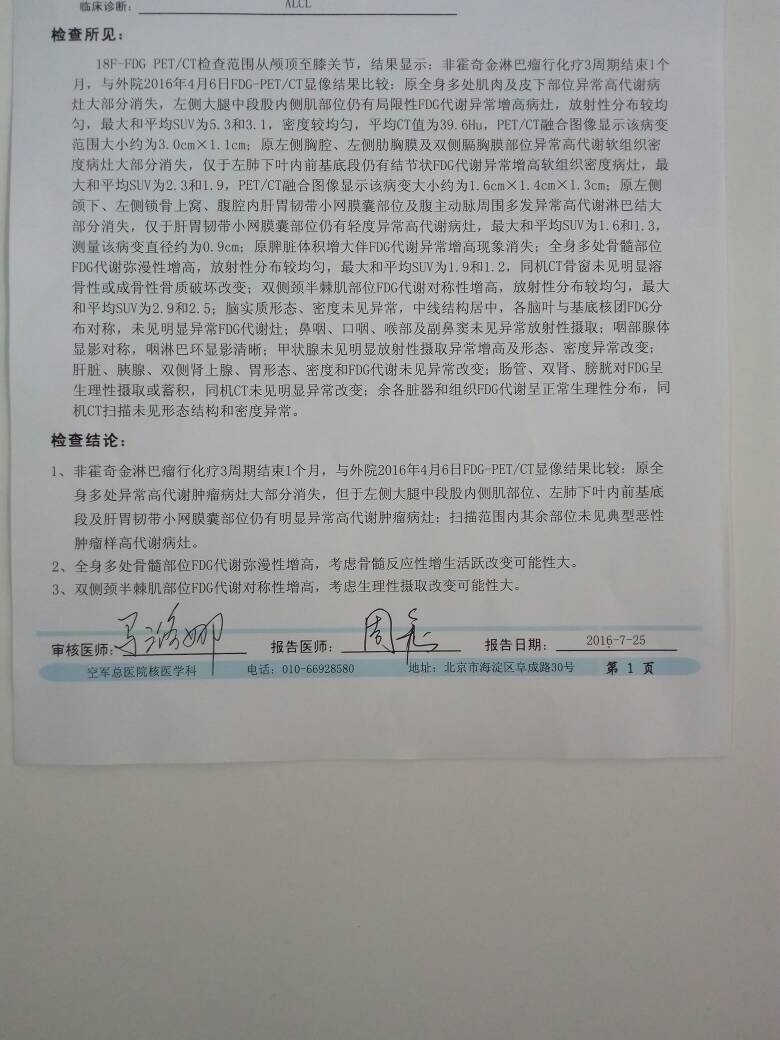 临床诊断: ALCL
检查所见:
18F-FDG PET/CT检查范围从颅顶至膝关节，结果显示: 非霍奇金淋巴瘤行化疗3周期结束1个
月，与外院2016年4月6日FDG-PET/CT显像结果比较: 原全身多处肌肉及皮下部位异常高代谢病
灶大部分消失，左侧大腿中段股内侧肌部位仍有局限性FDG代谢异常增高病灶，放射性分布较均
匀，最大和平均SUV为5.3和3.1，密度较均匀，平均CT值为39.6Hu，PET/CT融合图像显示该病变
范围大小约为3.0cm×1.1cm; 原左侧胸腔、左侧肋胸膜及双侧膈胸膜部位异常高代谢软组织密
度病灶大部分消失，仅于左肺下叶内前基底段仍有结节状FDG代谢异常增高软组织密度病灶，最
大和平均SUV为2.3和1.9，PET/CT融合图像显示该病变大小约为1.6cm×1.4cm×1.3cm; 原左侧
颌下、左侧锁骨上窝、腹腔内肝胃韧带小网膜囊部位及腹主动脉周围多发异常高代谢淋巴结大
部分消失，仅于肝胃韧带小网膜囊部位仍有轻度异常高代谢病灶，最大和平均SUV为1.6和1.3，
测量该病变直径约为0.9cm; 原脾脏体积增大伴FDG代谢异常增高现象消失; 全身多处骨髓部位
FDG代谢弥漫性增高，放射性分布较均匀，最大和平均SUV为1.9和1.2，同机CT骨窗未见明显溶
骨性或成骨性骨质破坏改变; 双侧颈半棘肌部位FDG代谢对称性增高，放射性分布较均匀，最大
和平均SUV为2.9和2.5; 脑实质形态、密度未见异常，中线结构居中，各脑叶与基底核团FDG分
布对称，未见明显异常FDG代谢灶; 鼻咽、口咽、喉部及副鼻窦未见异常放射性摄取; 咽部腺体
显影对称，咽淋巴环显影清晰; 甲状腺未见明显放射性摄取异常增高及形态、密度异常改变;
肝脏、胰腺、双侧肾上腺、胃形态、密度和FDG代谢未见异常改变; 肠管、双肾、膀胱对FDG呈
生理性摄取或蓄积，同机CT未见明显异常改变; 余各脏器和组织FDG代谢呈正常生理性分布，同
机CT扫描未见形态结构和密度异常。
检查结论:
1、非霍奇金淋巴瘤行化疗3周期结束1个月，与外院2016年4月6日FDG-PET/CT显像结果比较: 原全
身多处异常高代谢肿瘤病灶大部分消失，但于左侧大腿中段股内侧肌部位、左肺下叶内前基底
段及肝胃韧带小网膜囊部位仍有明显异常高代谢肿瘤病灶; 扫描范围内其余部位未见典型恶性
肿瘤样高代谢病灶。
2、全身多处骨髓部位FDG代谢弥漫性增高，考虑骨髓反应性增生活跃改变可能性大。
3、双侧颈半棘肌部位FDG代谢对称性增高，考虑生理性摄取改变可能性大。
审核医师: 报告医师: 报告日期: 2016-7-25
空军总医院核医学科 电话: 010-66928580 地址: 北京市海淀区阜成路30号 第 1 页